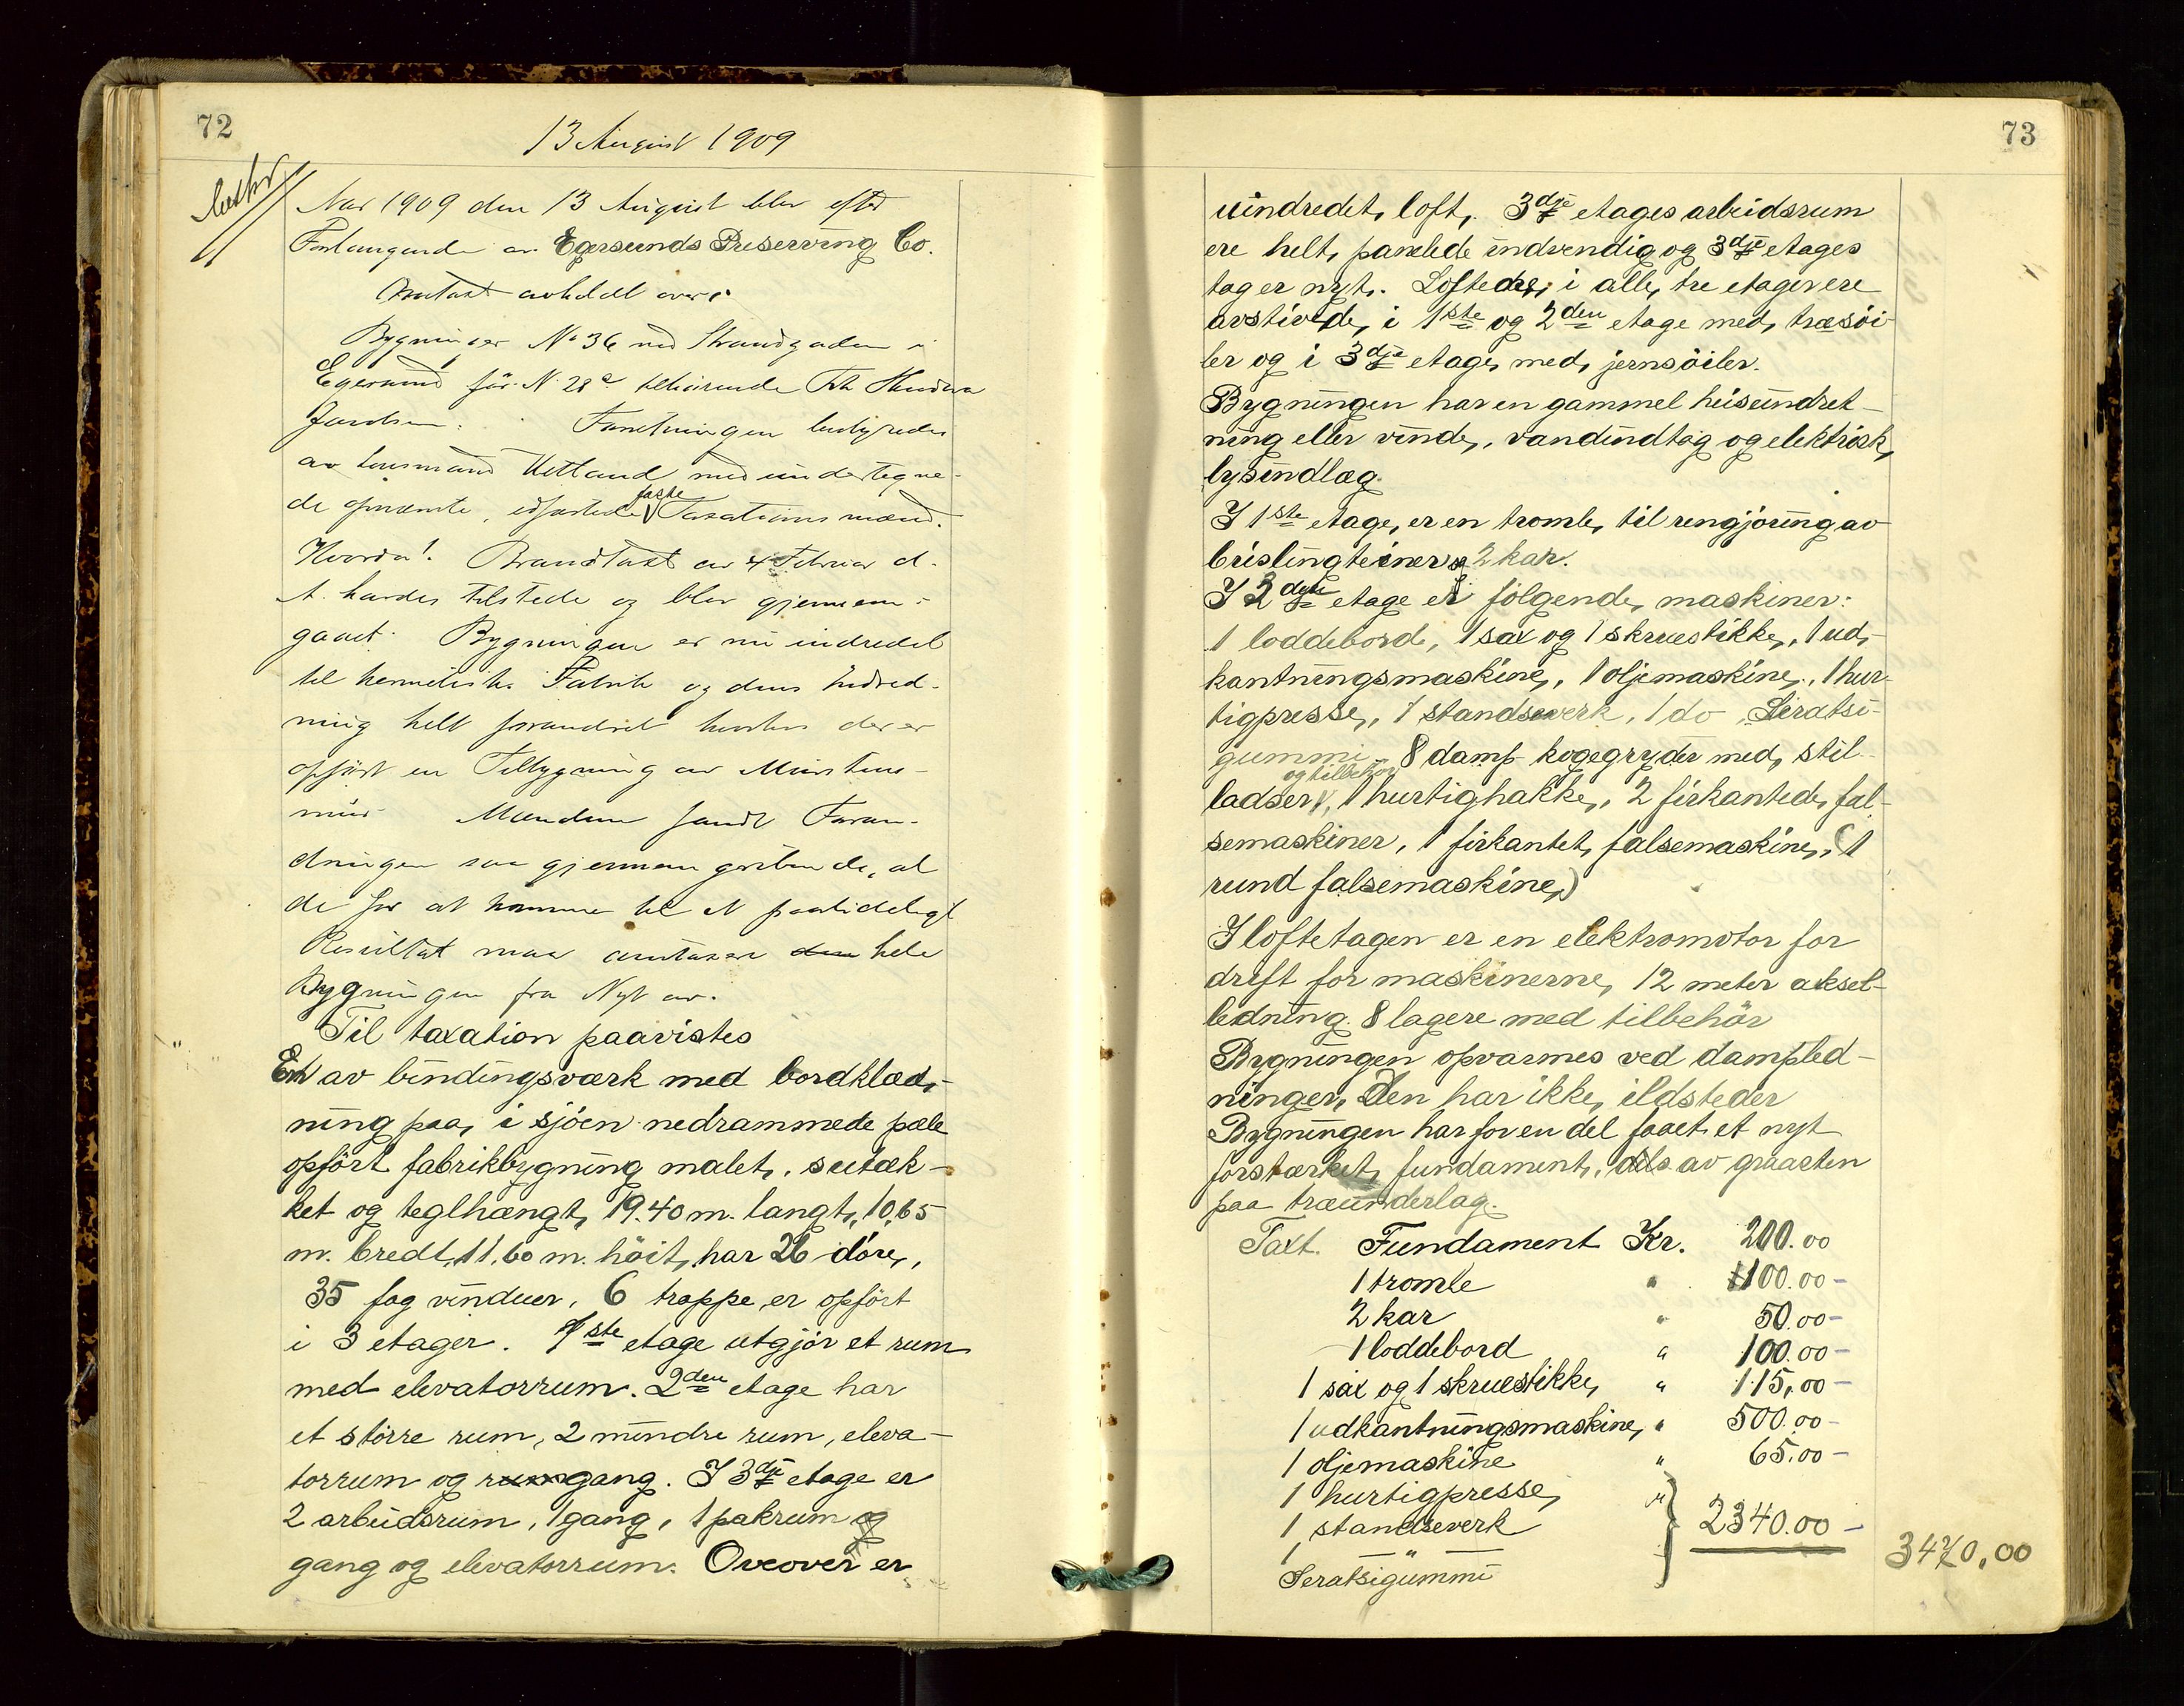 72
13 August 1909
Aar 1909 den 13 August blev efter
Forlangende av Egersunds Preserving Co.
Omtaxt avholdt over
Bygninger No 36 ved Strandgaden i
Egersund før N. 28c tilhørende
Jacobsen. Forretningen bestyredes
av lensmand Uetland med undertegne-
de opnævnte, edfæstede faste Taxationsmænd.
Hvorda! Brandtaxt av 4 Februar d.
A. havdes tilstede og blev gjennem-
gaaet. Bygningen er nu indredet
til hermetisk Fabrik og dens Indred-
ning helt forandret hvorhos der er
opført en Tilbygning av Murstens-
mur Mændene fandt Foran-
dringen saa gjennemgribende, at
de for at komme til et paalideligt
Resultat maa omtaxere den hele
Bygningen fra Nyt av.
Til taxation paavistes
En av bindingsværk med bordklæd-
ning paa, i sjöen nedrammede pæle
opfört fabrikbygning malet, sutæk-
ket og teglhængt, 19.40 m. langt, 10,65
m. bredt, 11.60 m. höit, har 26 döre,
35 fag vinduer, 6 trappe, er opfört
i 3 etager. 1ste etage utgjör et rum
med elevatorrum. 2den etage har
et större rum, 2 mindre rum, eleva-
torrum og rum gang. I 3dje etage er
2 arbeidsrum, 1 gang, 1 pakrum og
gang og elevatorrum. Oveover er
73
uindredet loft. 3dje etages arbeidsrum
ere helt panelede indvendig og 3dje etages
tag er nyt. Lofterne i alle tre etager ere
avstivede, i 1ste og 2den etage med træsöi-
ler og i 3dje etage med jernsöiler.
Bygningen har en gammel heiseindret-
ning eller vinde, vandindtag og elektrisk
lysindlæg.
I 1ste etage er en tromle til rengjöring av
brislingteiner og 2 kar.
I etage er fölgende maskiner:
1 loddebord, 1 sax og 1 skruestikke, 1 ud-
kantningsmaskine, 1 oljemaskine, 1 hur-
tigpresse, 1 standseverk, 1 do Seratsi-
gummi 8 damp kogegryder med stil-
ladser og tilbehör, 1 hurtighakke, 2 firkantede fal-
semaskiner, 1 firkantet falsemaskine, (1
rund falsemaskine)
I loftetagen er en elektromotor for
drift for maskinerne, 12 meter aksel-
ledning. 8 lagere med tilbehör
Bygningen opvarmes ved dampled-
ninger, Den har ikke ildsteder
Bygningen har for en del faaet et nyt
forstærket fundament, dels av graasten
paa træunderlag.
Taxt. Fundament Kr. 200.00
1 tromle " 100.00 -
2 kar " 50.00 -
1 loddebord " 100.00 -
1 sax og 1 skruestikke " 115,00 -
1 udkantningsmaskine " 500.00 -
1 oljemaskine " 65.00 -
1 hurtigpresse "
1 standseverk } 2340.00 -
1 — " —
Seratsigummi
3470,00